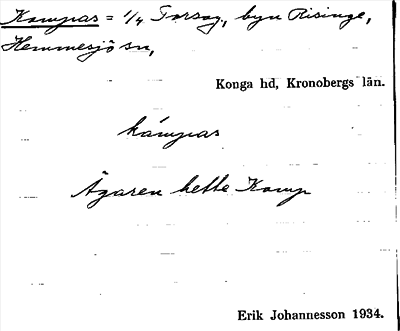 Kampas = 1/4 Torsag, byn Risinge,
Hemmesjö sn,
Konga hd, Kronobergs län.
kámpas
Ägaren hette Kamp
Erik Johannesson 1934.